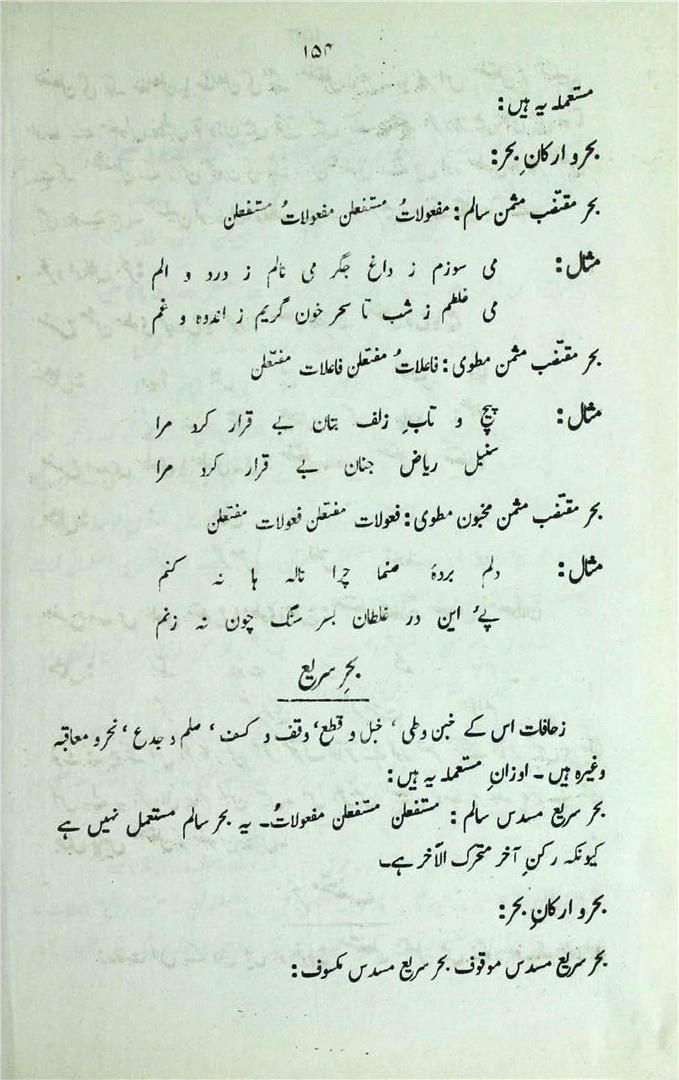 ۱۵۴
مستعملہ یہ ہیں:
بحر و ارکانِ بحر:
بحر مقتضب مثمن سالم: مفعولاتُ مستفعلن مفعولاتُ مستفعلن
مثال: می سوزم ز داغ جگر می نالم ز درد و الم
می غلطم ز شب تا سحر خون گریم ز اندوہ و غم
بحر مقتضب مثمن مطوی: فاعلاتُ مفتعلن فاعلات مفتعلن
مثال: پیچ و تابِ زلف بتان بے قرار کرد مرا
سنبل ریاض جنان بے قرار کرد مرا
بحر مقتضب مثمن مخبون مطوی: فعولات مفتعلن فعولات مفتعلن
مثال: دلم بردۂ صنما چرا نالہ ہا نہ کنم
پےُ این در غلطان بسر سنگ چون نہ زنم
بحرِ سریع
زحافات اس کے خبن وطی، خبل و قطع، وقف و کسف، صلم و جدع، نحر و معاقبہ
وغیرہ ہیں۔ اوزانِ مستعملہ یہ ہیں:
بحر سریع مسدس سالم: مستفعلن مستفعلن مفعولاتُ۔ یہ بحر سالم مستعمل نہیں ہے
کیونکہ رکنِ آخر متحرک الآخر ہے۔
بحر و ارکانِ بحر:
بحر سریع مسدس موقوف بحر سریع مسدس مکسوف: